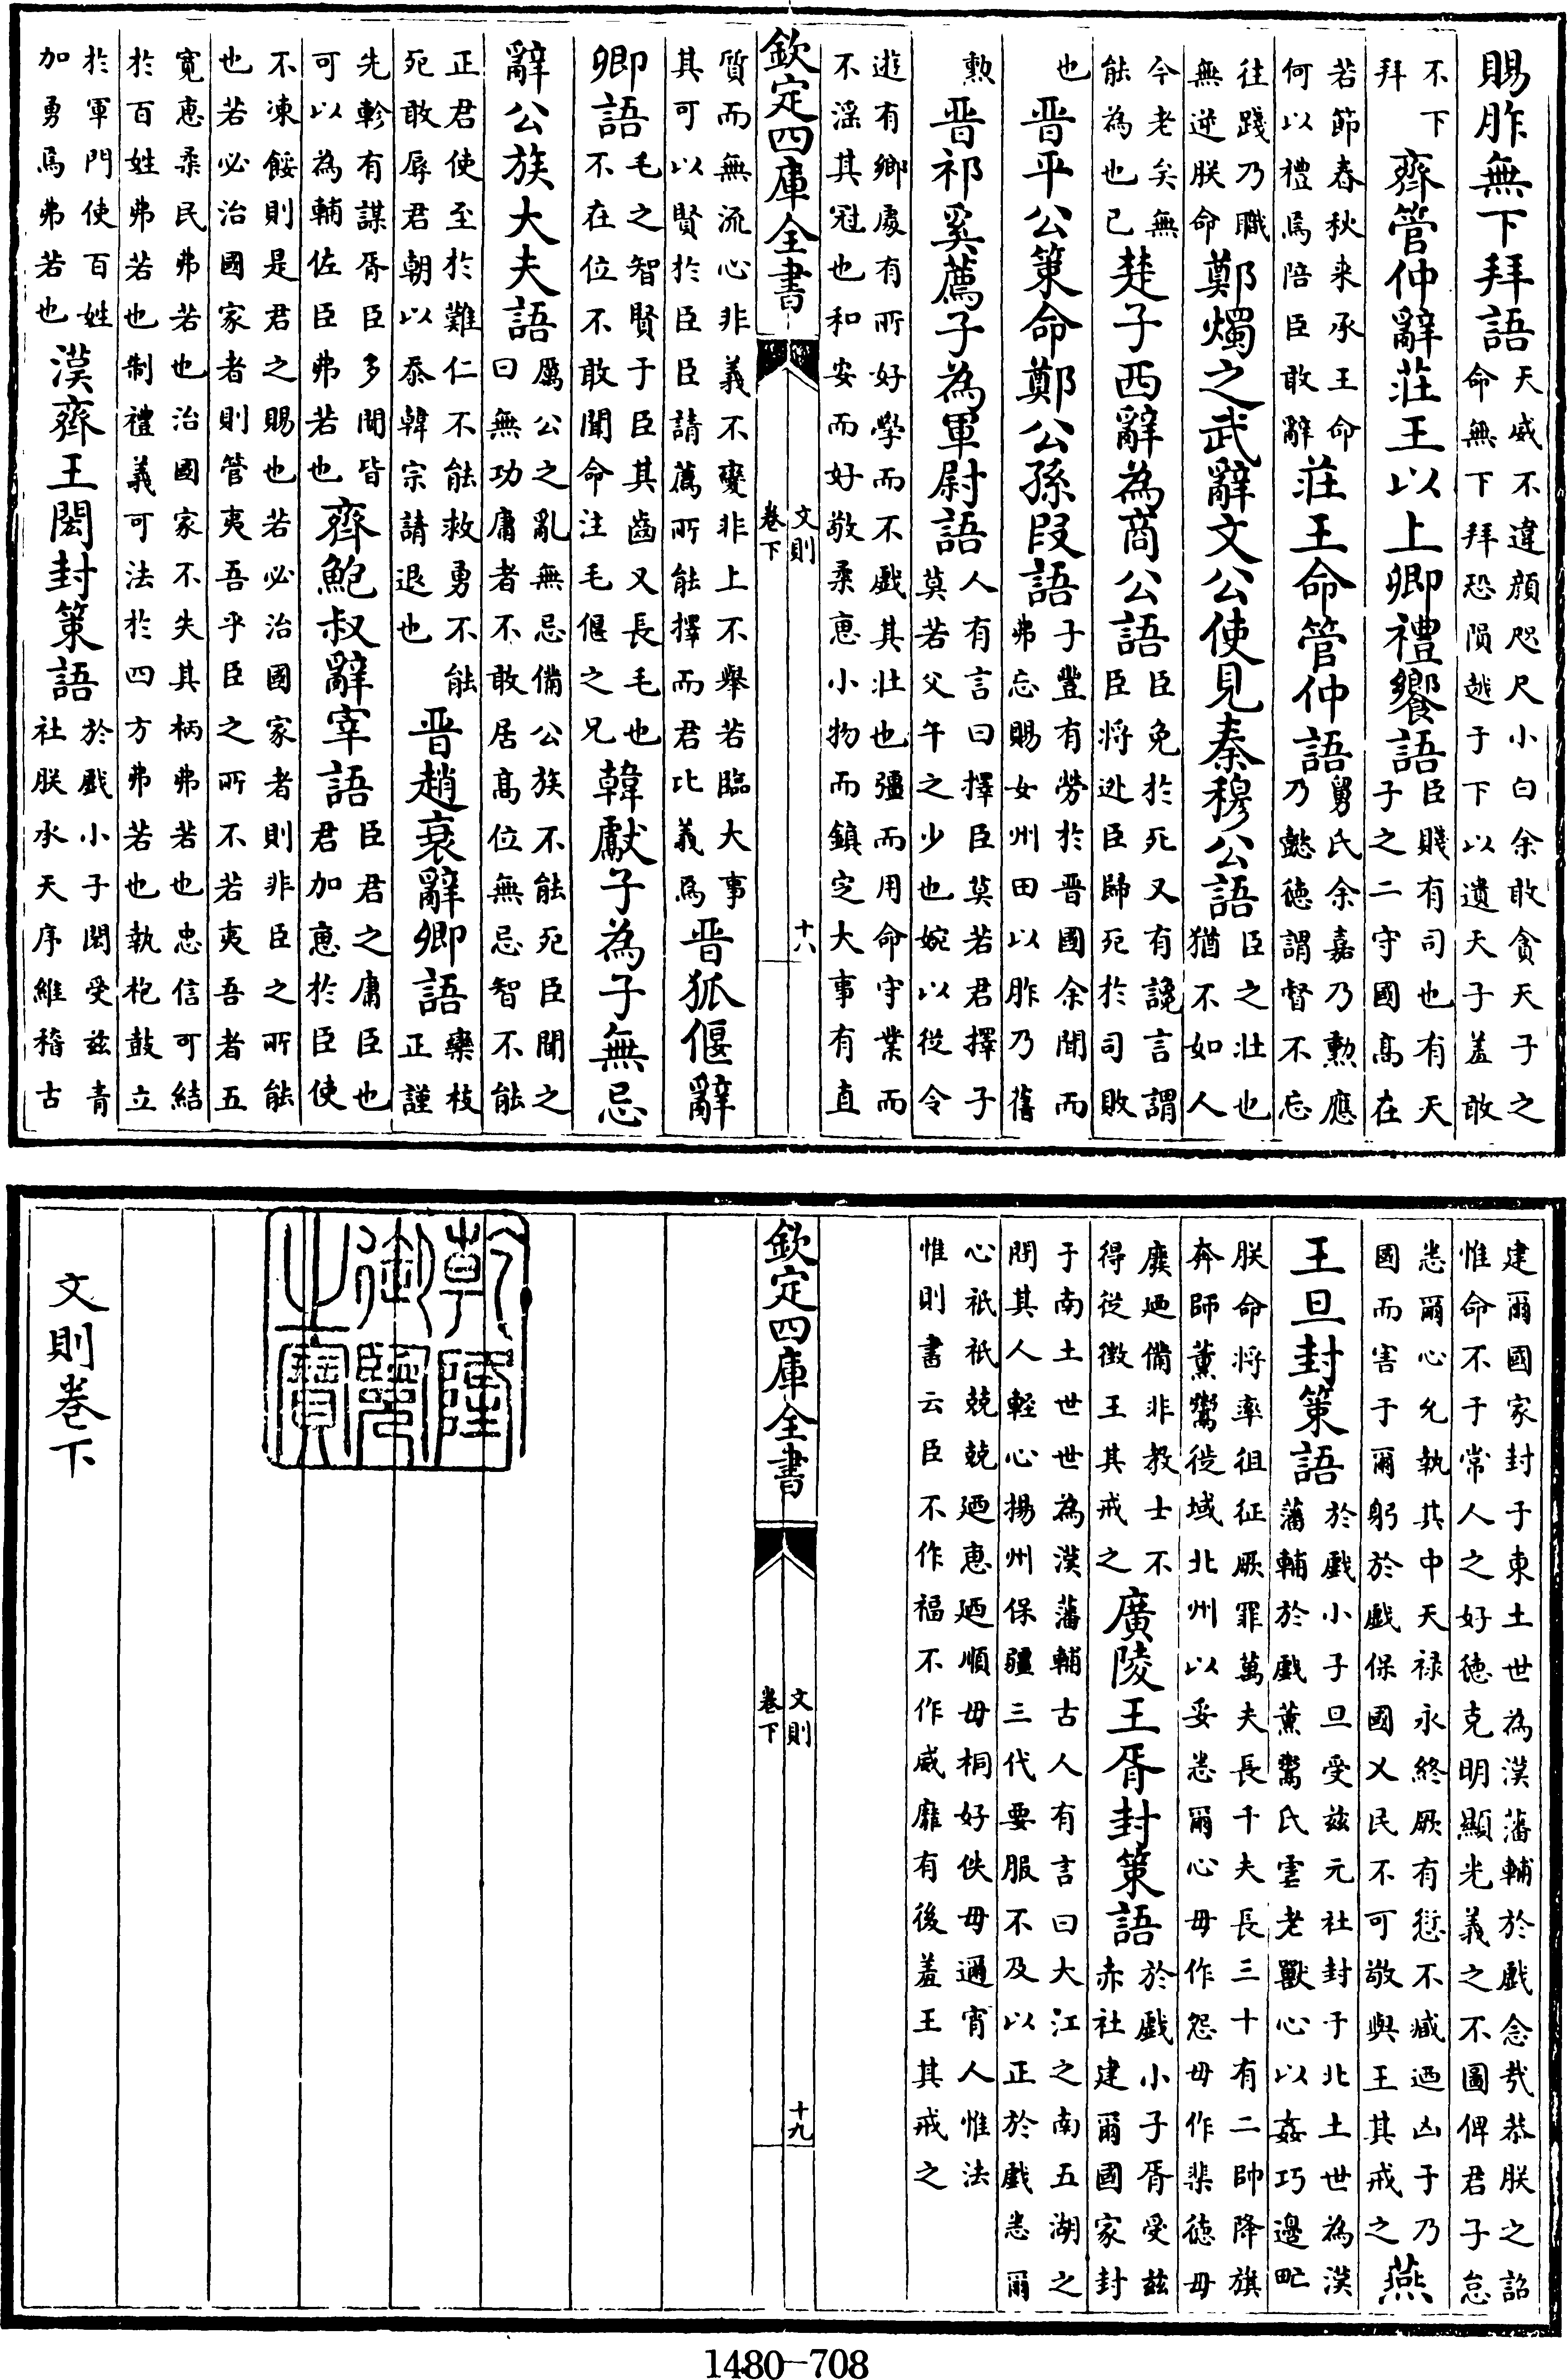 賜胙無下拜語
天威不違顔咫尺小白余敢貪天子之
命無下拜恐隕越于下以遺天子羞敢
不下
拜
齊管仲辭莊王以上卿禮饗語
臣賤有司也有天
子之二守國髙在
若節春秋来承王命
何以禮焉陪臣敢辭
莊王命管仲語
舅氏余嘉乃勲應
乃懿徳謂督不忘
往踐乃職
無逆朕命
鄭燭之武辭文公使見秦穆公語
臣之壯也
猶不如人
今老矣無
能為也已
楚子西辭為商公語
臣免於死又有讒言謂
臣將逃臣歸死於司敗
也
晉平公策命鄭公孫段語
子豐有勞於晉國余聞而
弗忘賜女州田以胙乃舊
勲
晉祁奚薦子為軍尉語
人有言曰擇臣莫若君擇子
莫若父午之少也婉以從令
逰有鄉處有所好學而不戲其壮也彊而用命守業而
不淫其冠也和安而好敬柔恵小物而鎮定大事有直
欽定四庫全書
文則
卷下
十八
質而無流心非義不變非上不舉若臨大事
其可以賢於臣臣請薦所能擇而君比義焉
晉狐偃辭
卿語
毛之智賢于臣其齒又長毛也
不在位不敢聞命注毛偃之兄
韓獻子為子無忌
辭公族大夫語
厲公之亂無忌備公族不能死臣聞之
曰無功庸者不敢居髙位無忌智不能
正君使至於難仁不能救勇不能
死敢辱君朝以忝韓宗請退也
晉趙衰辭卿語
欒枝
正謹
先軫有謀胥臣多聞皆
可以為輔佐臣弗若也
齊鮑叔辭宰語
臣君之庸臣也
君加恵於臣使
不凍餒則是君之賜也若必治國家者則非臣之所能
也若必治國家者則管夷吾乎臣之所不若夷吾者五
寛恵柔民弗若也治國家不失其柄弗若也忠信可結
於百姓弗若也制禮義可法於四方弗若也執枹鼓立
於軍門使百姓
加勇焉弗若也
漢齊王閎封策語
於戲小子閎受兹青
社朕承天序維稽古
建爾國家封于東土世為漢藩輔於戲念哉恭朕之詔
惟命不于常人之好徳克明顯光義之不圖俾君子怠
悉爾心允執其中天禄永終厥有愆不臧迺凶于乃
國而害于爾躬於戲保國乂民不可敬與王其戒之
燕
王旦封策語
於戲小子旦受兹元社封于北土世為漢
藩輔於戲薫鬻氏虐老獸心以姦巧邊甿
朕命將率徂征厥罪萬夫長千夫長三十有二帥降旗
奔師薫鬻徙域北州以妥悉爾心毋作怨毋作棐徳毋
廢廼備非教士不
得從徵王其戒之
廣陵王胥封策語
於戲小子胥受兹
赤社建爾國家封
于南土世世為漢藩輔古人有言曰大江之南五湖之
間其人輕心揚州保疆三代要服不及以正於戲悉爾
心祇祇兢兢廼恵廼順毋桐好佚毋邇宵人惟法
惟則書云臣不作福不作威靡有後羞王其戒之
欽定四庫全書
文則
卷下
十九
乾隆御覽之寶
文則卷下
1480-708